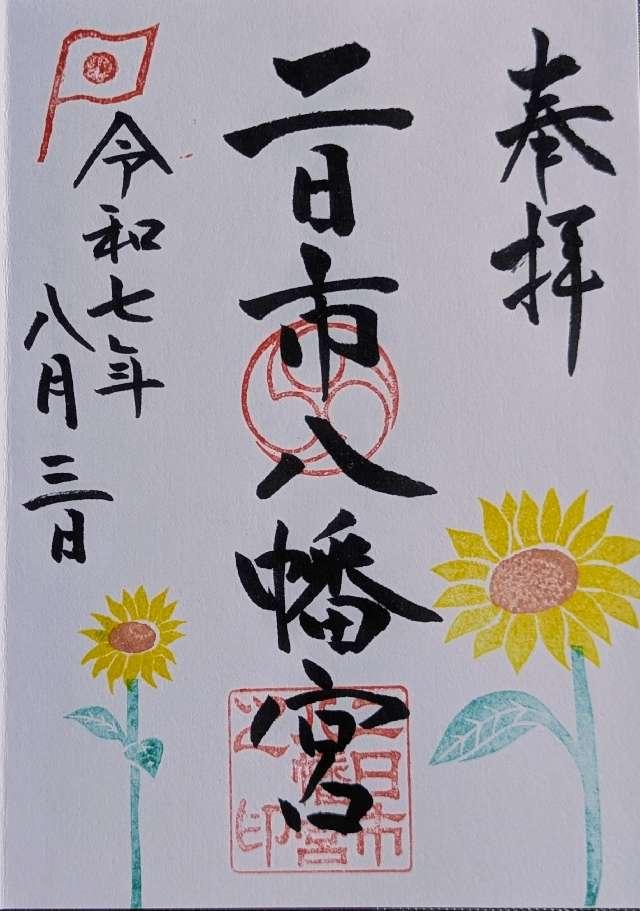 奉拝
二日市八幡宮
二日市
八幡宮
之印
令和七年
八月三日